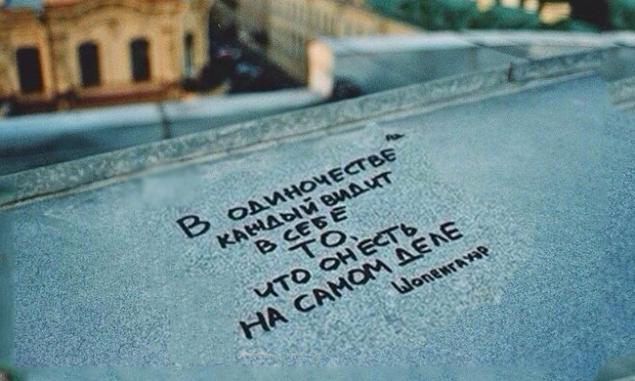 В ОДИНОЧЕСТВЕ
КАЖДЫЙ ВИДИТ
В СЕБЕ
ТО,
ЧТО ОН ЕСТЬ
НА САМОМ ДЕЛЕ
ШОПЕНГАУЭР